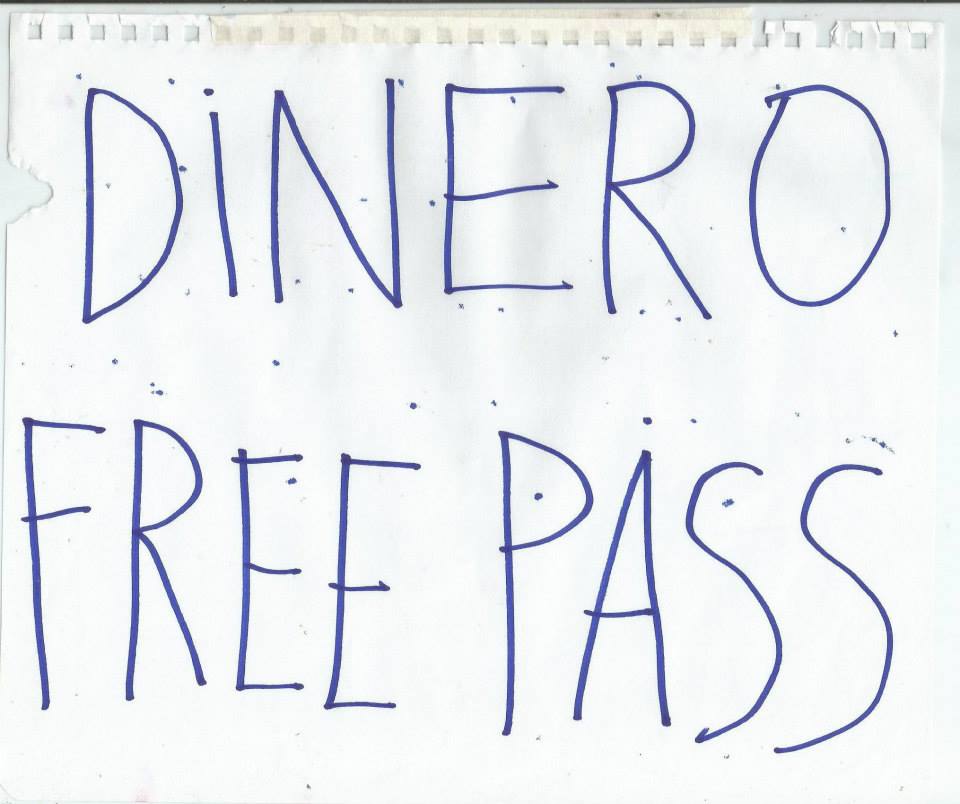 DiNERO
FREE PASS